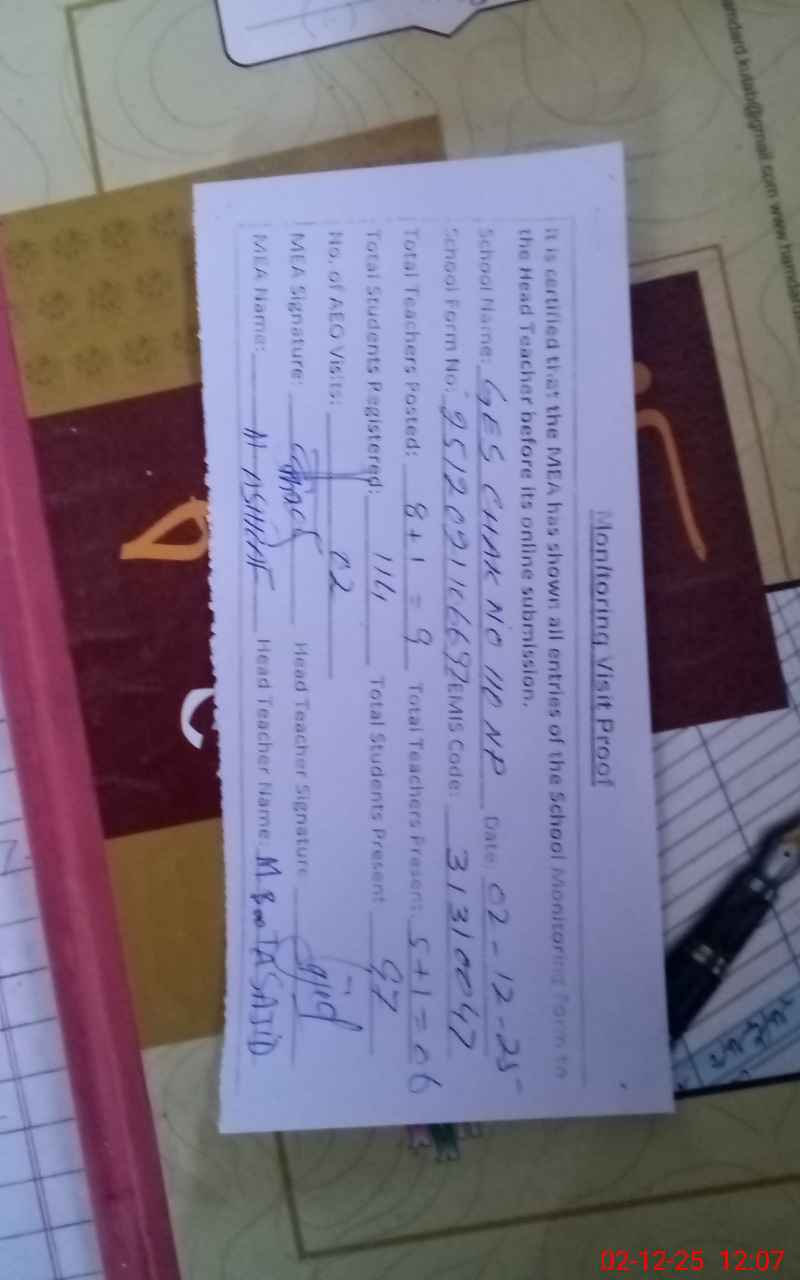 Monitoring Visit Proof
It is certified that the MEA has shown all entries of the School Monitoring Form to
the Head Teacher before its online submission.
School Name: GES CHAK NO 110 NP Date: 02-12-25
School Form No: EMIS Code: 31310047
Total Teachers Posted: 8+1=9 Total Teachers Present: 5+1=06
Total Students Registered: 114 Total Students Present 97
No. of AEO Visits: 02
MEA Signature: Head Teacher Signature Sajid
MEA Name: M ASHRAF Head Teacher Name: M. BooTA SAJID
02-12-25 12:07